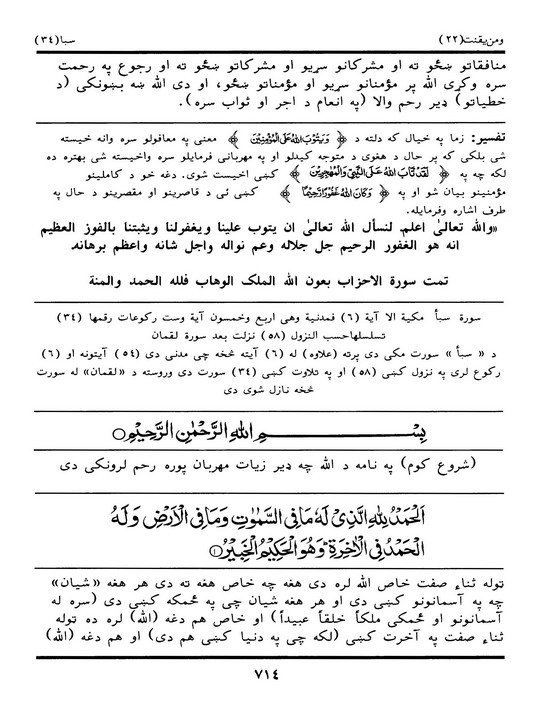 ومن یقنت(٢٢) سبا(٣٤)
منافقاتو ښځو ته او مشرکانو سړیو او مشرکاتو ښځو ته او رجوع په رحمت
سره وکړی الله پر مؤمنانو سړیو او مؤمناتو ښځو، او دی الله ښه بښونکی (د
خطیاتو) ډیر رحم والا (په انعام د اجر او ثواب سره).
تفسیر: زما په خیال که دلته د ﴿ وَيَتُوْبَ اللهُ عَلَى الْمُؤْمِنِيْنَ ﴾ معنی په معافولو سره وانه خیسته
شی بلکی که پر حال د هغوی د متوجه کیدلو او په مهربانی فرمایلو سره واخیسته شی بهتره ده
لکه چه په ﴿ لَقَدْ تَّابَ اللهُ عَلَى النَّبِيِّ وَالْمُهٰجِرِيْنَ ﴾ کښی اخیست شوی. دغه خو د کاملینو
مؤمنینو بیان شو او په ﴿ وَكَانَ اللهُ غَفُوْرًا رَّحِيْمًا ﴾ کښی ئی د قاصرینو او مقصرینو د حال په
طرف اشاره وفرمایله.
«والله تعالیٰ اعلم. لنسأل الله تعالیٰ ان یتوب علینا ویغفرلنا ویثبتنا بالفوز العظیم
انه هو الغفور الرحیم جل جلاله وعم نواله واجل شانه واعظم برهانه.
تمت سورة الاحزاب بعون الله الملک الوهاب فلله الحمد والمنة
سورة سبأ مکیة الا آیة (٦) فمدنیة وهی اربع وخمسون آیة وست رکوعات رقمها (٣٤)
تسلسلهاحسب النزول (٥٨) نزلت بعد سورة لقمان
د « سبأ » سورت مکی دی پرته (علاوه) له (٦) آیته څخه چی مدنی دی (٥٤) آیتونه او (٦)
رکوع لری په نزول کښی (٥٨) او په تلاوت کښی (٣٤) سورت دی وروسته د «لقمان» له سورت
څخه نازل شوی دی
بِسْــــــمِ اللهِ الرَّحْمٰنِ الرَّحِيْمِ
(شروع کوم) په نامه د الله چه ډیر زیات مهربان پوره رحم لرونکی دی
اَلْحَمْدُ لِلّٰهِ الَّذِيْ لَهٗ مَا فِي السَّمٰوٰتِ وَمَا فِي الْاَرْضِ وَلَهُ
الْحَمْدُ فِي الْاٰخِرَةِ ۗ وَهُوَ الْحَكِيْمُ الْخَبِيْرُ ۝١
ټوله ثناء صفت خاص الله لره دی هغه چه خاص هغه ته دی هر هغه «شیان»
چه په آسمانونو کښی دی او هر هغه شیان چی په ځمکه کښی دی (سره له
آسمانونو او ځمکی ملکاً خلقاً عبیداً) او خاص هم دغه (الله) لره ده ټوله
ثناء صفت په آخرت کښی (لکه چی په دنیا کښی هم دی) او هم دغه (الله)
٧١٤